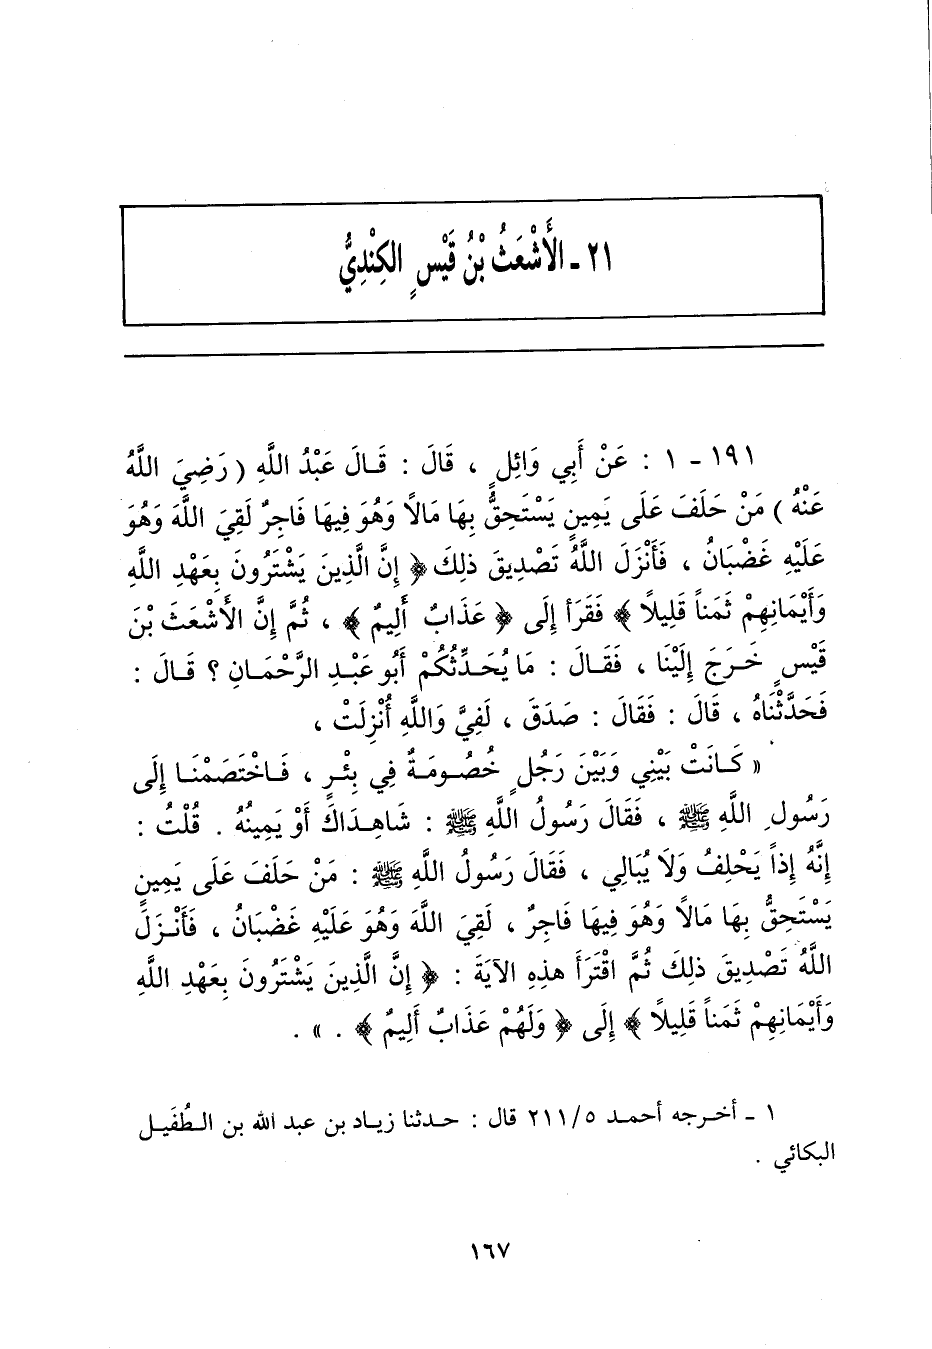 ٢١ ـ الأَشْعَثُ بْنُ قَيْسٍ الكِنْدِيُّ
١٩١ ـ ١ : عَنْ أَبِي وَائِلٍ ، قَالَ : قَالَ عَبْدُ اللَّهِ ( رَضِيَ اللَّهُ
عَنْهُ ) مَنْ حَلَفَ عَلَى يَمِينٍ يَسْتَحِقُّ بِهَا مَالاً وَهُوَ فِيهَا فَاجِرٌ لَقِيَ اللَّهَ وَهُوَ
عَلَيْهِ غَضْبَانُ ، فَأَنْزَلَ اللَّهُ تَصْدِيقَ ذلِكَ ﴿ إِنَّ الَّذِينَ يَشْتَرُونَ بِعَهْدِ اللَّهِ
وَأَيْمَانِهِمْ ثَمَناً قَلِيلاً ﴾ فَقَرَأَ إِلَى ﴿ عَذَابٌ أَلِيمٌ ﴾ ، ثُمَّ إِنَّ الأَشْعَثَ بْنَ
قَيْسٍ خَرَجَ إِلَيْنَا ، فَقَالَ : مَا يُحَدِّثُكُمْ أَبُو عَبْدِ الرَّحْمَانِ ؟ قَالَ :
فَحَدَّثْنَاهُ ، قَالَ : فَقَالَ : صَدَقَ ، لَفِيَّ وَاللَّهِ أُنْزِلَتْ ،
« كَانَتْ بَيْنِي وَبَيْنَ رَجُلٍ خُصُومَةٌ فِي بِئْرٍ ، فَاخْتَصَمْنَا إِلَى
رَسُولِ اللَّهِ ﷺ ، فَقَالَ رَسُولُ اللَّهِ ﷺ : شَاهِدَاكَ أَوْ يَمِينُهُ . قُلْتُ :
إِنَّهُ إِذاً يَحْلِفُ وَلاَ يُبَالِي ، فَقَالَ رَسُولُ اللَّهِ ﷺ : مَنْ حَلَفَ عَلَى يَمِينٍ
يَسْتَحِقُّ بِهَا مَالاً وَهُوَ فِيهَا فَاجِرٌ ، لَقِيَ اللَّهَ وَهُوَ عَلَيْهِ غَضْبَانُ ، فَأَنْزَلَ
اللَّهُ تَصْدِيقَ ذلِكَ ثُمَّ اقْتَرَأَ هذِهِ الآيَةَ : ﴿ إِنَّ الَّذِينَ يَشْتَرُونَ بِعَهْدِ اللَّهِ
وَأَيْمَانِهِمْ ثَمَناً قَلِيلاً ﴾ إِلَى ﴿ وَلَهُمْ عَذَابٌ أَلِيمٌ ﴾ . » .
١ ـ أخرجه أحمد ٢١١/٥ قال : حدثنا زياد بن عبد الله بن الطُفَيل
البكائي .
١٦٧